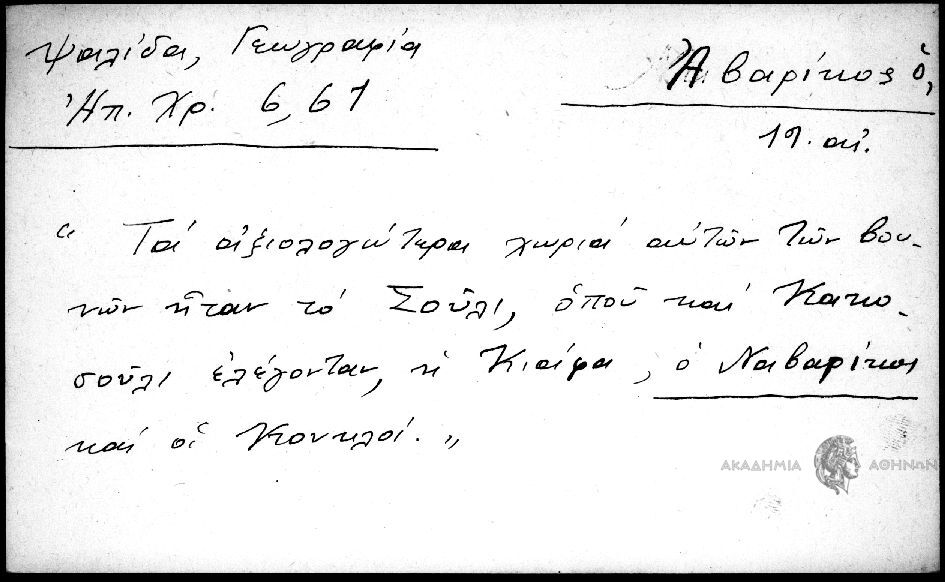 Ψαλίδα, Γεωγραφία
Ἠπ. Χρ. 6, 61
Ἀβαρίκος ὁ,
19. αἰ.
“ Τά ἀξιολογώτερα χωριά αὐτῶν τῶν βου-
νῶν ἦταν τό Σοῦλι, ὁπού καί Κακο-
σοῦλι ἐλέγονταν, ἡ Κιάφα, ὁ Ναβαρίκος
καί οἱ Κονκλοί. „
ΑΚΑΔΗΜΙΑ ΑΘΗΝΩΝ